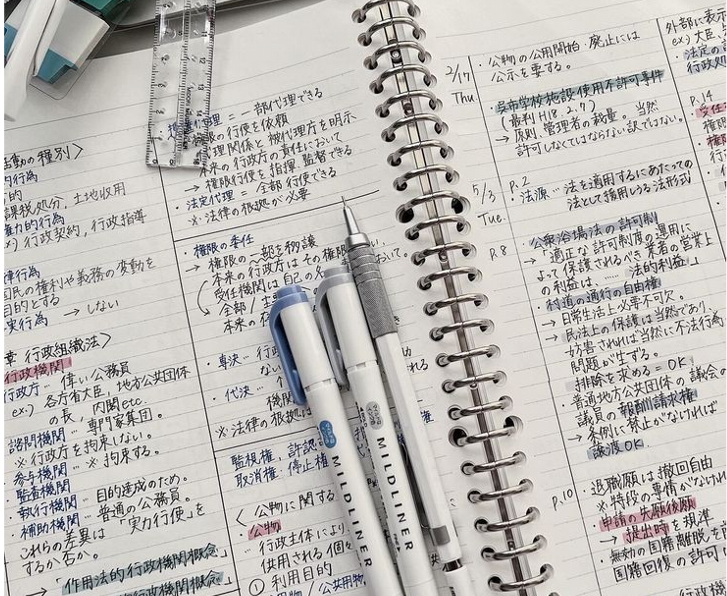 活動の種別〉
的行為
課税処分、土地収用
権力的行為
行政契約、行政指導
律行為
国民の権利や義務の変動を
目的とする
実行為 → しない
行政組織法〉
行政機関
行政庁 … 偉い公務員
ex.) 各庁省大臣、地方公共団体
の長、内閣etc.
諮問機関 … 専門家集団。
※ 行政を拘束しない。
参与機関 … ※ 拘束する。
監査機関
執行機関 … 目的達成のため。
補助機関 … 普通の公務員。
これらの差異は「実力行使」を
するか否か。
→ 「作用法的行政機関概念」
行政機関概念」
代理 = 一部代理できる
限の行使を依頼
代理関係と被代理庁を明示
本来の行政庁の責任において
→ 権限行使を指揮監督できる
・法定代理 = 全部行使できる
※ 法律の根拠が必要
・権限の委任
→ 権限の一部を移譲
本来の行政庁はその権
受任機関は自己の
全部/主要
本来の
・専決 … 行政
・代決
※ 法律の根拠は
監視権、許認
取消権、停止権
〈公物に関する
公物
… 行政主体により
供用される個々
① 利用目的
公共用物
・公物の公用開始・廃止には
公示を要する。
2/17
Thu
呉市学校施設使用不許可事件
(最判H18.2.7)
→ 原則、管理者の裁量。当然
許可しなくてはならない訳ではない。
5/3
Tue.
P.2
法源 … 法を適用するにあたっての
法として援用しうる法形式
P.8
公衆浴場法の許可制
→ 「適正な許可制度の運用に
よって保護されるべき業者の営業上
の利益は、…… 法的利益」
村道の通行の自由権
→ 日常生活上必要不可欠。
→ 民法上の保護は当然であり、
妨害されれば当然に不法行為
問題が生ずる。
排除を求める = OK
普通地方公共団体の議会の
議員の報酬請求権
→ 条例に禁止がなければ
譲渡OK
P.10
・退職願は撤回自由
※ 特段の事情がなければ
申請の失願後願
→ 提出時を規準
・無効の国籍離脱を
国籍回復の許可
外部に表示
ex) 大臣、
法定の
行政処
P.14
MILDLINER
MILDLINER